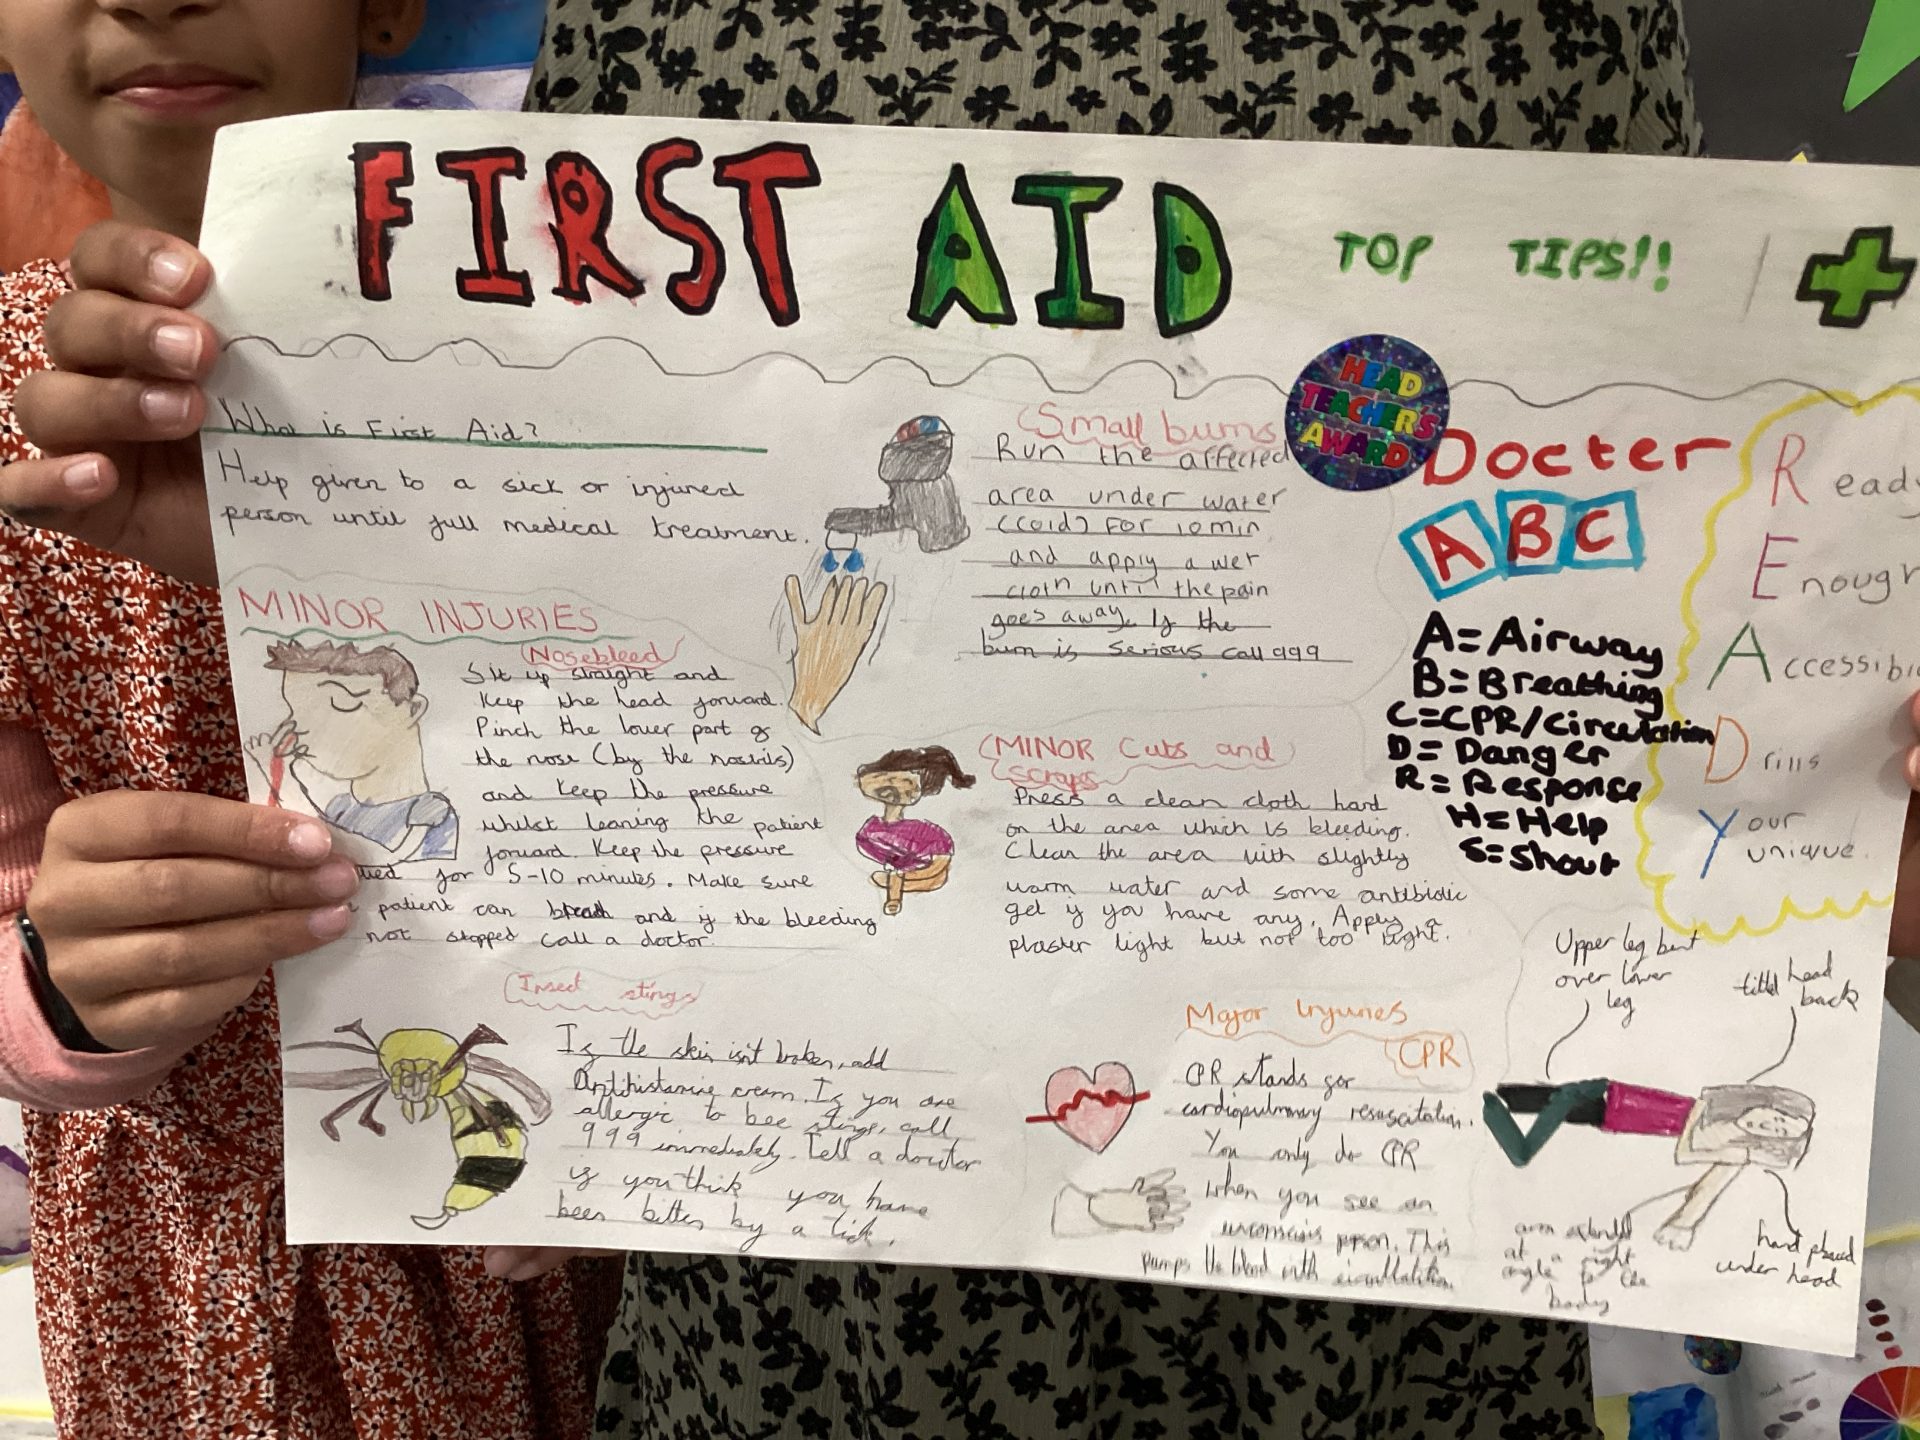 FIRST AID TOP TIPS!!
HEAD
TEACHER'S
AWARD
What is First Aid?
Help given to a sick or injured
person until full medical treatment.
MINOR INJURIES
Nosebleed
Sit up straight and
Keep the head forward.
Pinch the lower part of
the nose (by the nostrils)
and keep the pressure
whilst leaning the patient
forward. Keep the pressure
for 5-10 minutes. Make sure
patient can breath and if the bleeding
not stopped call a doctor.
Insect stings
If the skin isn't broken, add
Antihistamine cream. If you are
allergic to bee stings, call
999 immediately. Tell a doctor
if you think you have
been bitten by a tick.
Small burns
Run the affected
area under water
(cold) for 10 min
and apply a wet
cloth until the pain
goes away. If the
burn is serious call 999
MINOR Cuts and
scraps
Press a clean cloth hard
on the area which is bleeding.
Clean the area with slightly
warm water and some antibiotic
gel if you have any. Apply a
plaster light but not too tight.
Major Injuries
CPR
CPR stands for
cardiopulmonary resuscitation.
You only do CPR
when you see an
unconscious person. This
pumps the blood with
Docter
ABC
A=Airway
B=Breathing
C=CPR/Circulation
D=Danger
R=Response
H=Help
S=Shout
Ready
Enough
Accessible
Drills
Your
unique.
Upper leg bent
over lower
leg
head
back
arm extended
at a right
angle to the
body
hand placed
under head